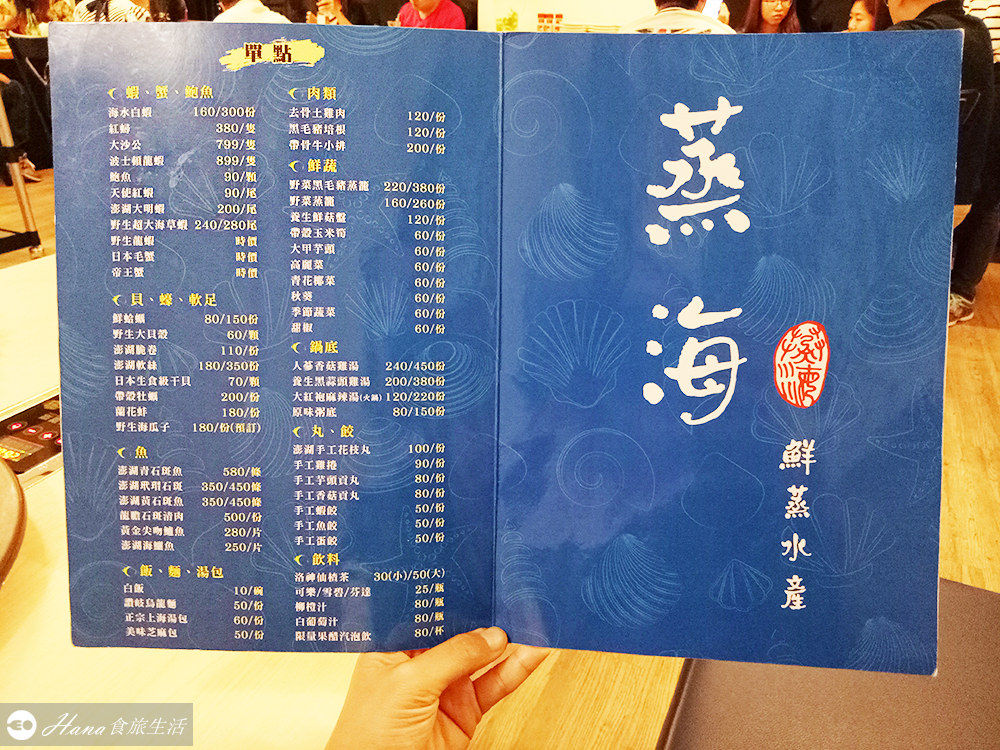 單點
蝦、蟹、鮑魚
海水白蝦 160/300份
紅蟳 380/隻
大沙公 799/隻
波士頓龍蝦 899/隻
鮑魚 90/顆
天使紅蝦 90/尾
澎湖大明蝦 200/尾
野生超大海草蝦 240/280尾
野生龍蝦 時價
日本毛蟹 時價
帝王蟹 時價
貝、蠔、軟足
鮮蛤蠣 80/150份
野生大貝殼 60/顆
澎湖脆卷 110/份
澎湖軟絲 180/350份
日本生食級干貝 70/顆
帶殼牡蠣 200/份
蘭花蚌 180/份
野生海瓜子 180/份(預訂)
魚
澎湖青石斑魚 580/條
澎湖玳瑁石斑 350/450條
澎湖黃石斑魚 350/450條
龍膽石斑清肉 500/份
黃金尖吻鱸魚 280/片
澎湖海鱺魚 250/片
飯、麵、湯包
白飯 10/碗
讚岐烏龍麵 50/份
正宗上海湯包 60/份
美味芝麻包 50/份
肉類
去骨土雞肉 120/份
黑毛豬培根 120/份
帶骨牛小排 200/份
鮮蔬
野菜黑毛豬蒸籠 220/380份
野菜蒸籠 160/260份
養生鮮菇盤 120/份
帶殼玉米筍 60/份
大甲芋頭 60/份
高麗菜 60/份
青花椰菜 60/份
秋葵 60/份
季節蔬菜 60/份
甜椒 60/份
鍋底
人蔘香菇雞湯 240/450份
養生黑蒜頭雞湯 200/380份
大紅袍麻辣湯(火鍋) 120/220份
原味粥底 80/150份
丸、餃
澎湖手工花枝丸 100/份
手工雞捲 90/份
手工芋頭貢丸 80/份
手工香菇貢丸 80/份
手工蝦餃 50/份
手工魚餃 50/份
手工蛋餃 50/份
飲料
洛神仙楂茶 30(小)/50(大)
可樂/雪碧/芬達 25/瓶
柳橙汁 80/瓶
白葡萄汁 80/瓶
限量果醋汽泡飲 80/杯
蒸海
鮮蒸水産
Hana食旅生活